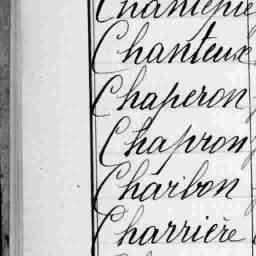 Chanteux
Chaperon
Chapron
Charbon
Charrière